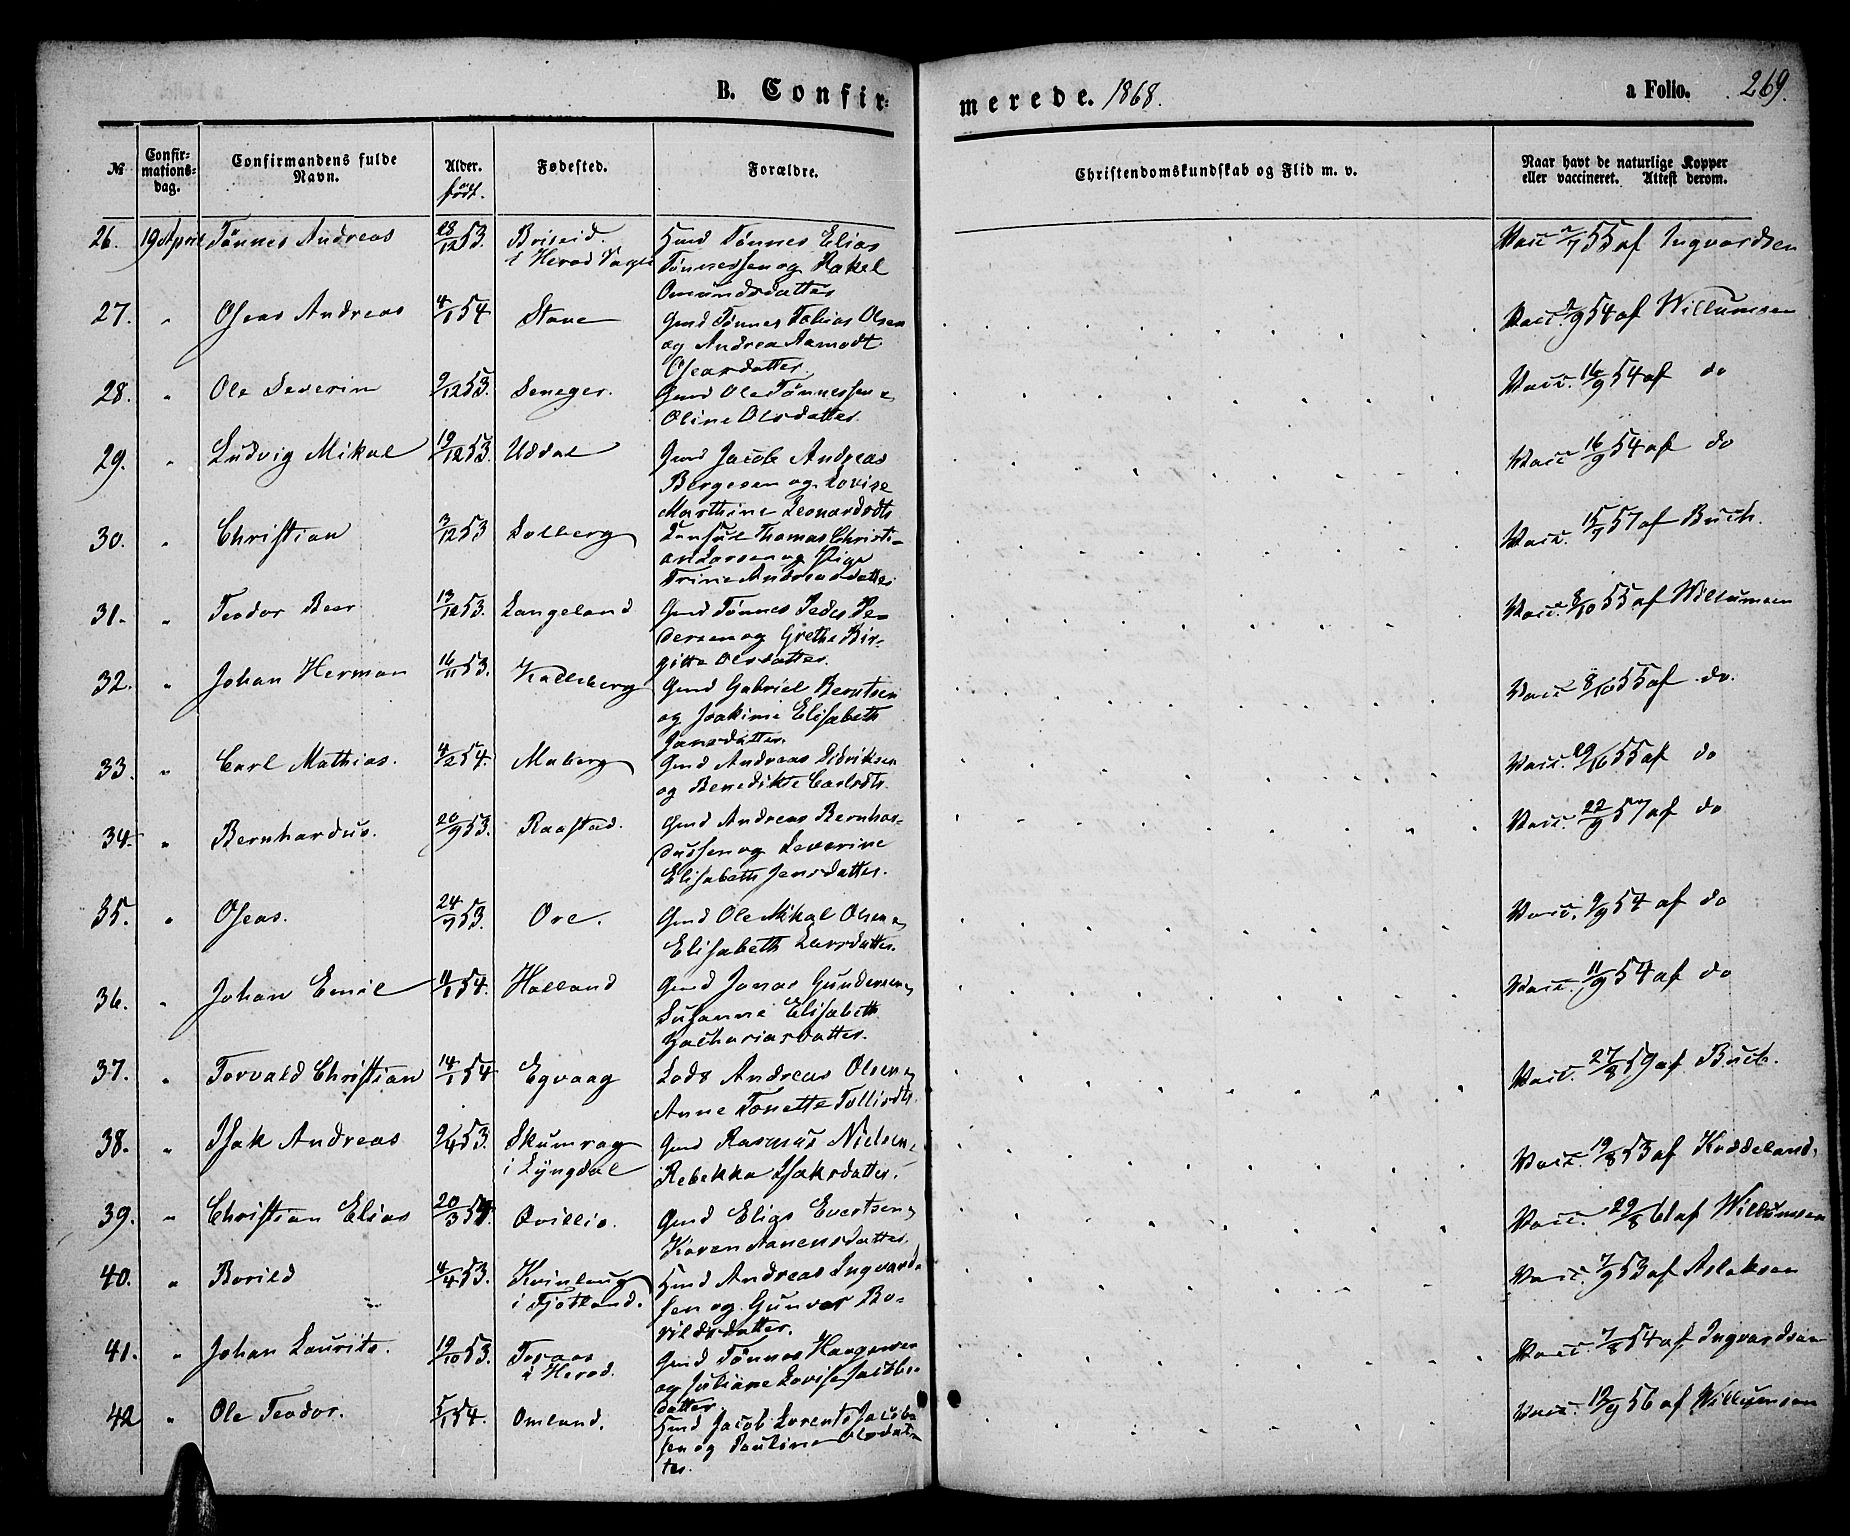 B. Confir-
merede. 1868.
a Folio. 269.
№
Confir-
mations-
dag.
Confirmandens fulde
Navn.
Alder.
født
Fødested.
Forældre.
Christendomskundskab og Flid m. v.
Naar havt de naturlige Kopper
eller vaccineret. Attest derom.
26. 19 April Tønnes Andreas 28/12 53. Briseid Hmd Tønnes Elias Vacc 2/7 55 af Ingvardsen
i Herad Tønnessen og Rakel
Omundsdatter
27. " Oseas Andreas 4/1 54 Stave Gmd Tønnes Tobias Olsen Vacc. 2/9 54 af Willumsen
og Andrea Aamodt
Osearsdatter.
28. " Ole Severin 9/12 53. Seneger. Gmd Ole Tønnessen & Vacc. 16/9 54 af do
Oline Olsdatter.
29. " Ludvig Mikal 19/12 53. Uddal Gmd Jacob Andreas Vacc 16/9 54 af do
Bergesen og Lovise
Marthine Leonardsdtr
30. " Christian 3/12 53 Solberg Consul Thomas Christi- Vacc. 15/7 57 af Buch.
an Larsen og Pige
Trine Andreasdatter
31. " Teodor Beer 13/12 53. Langeland Gmd Tønnes Peder Pe- Vacc. 8/10 55 af Willumsen
dersen og Grethe Bir-
gitte Olsdatter.
32. " Johan Herman 16/11 53. Kalleberg Gmd Gabriel Berntsen Vacc 8/10 55 af do.
og Joakime Elisabeth
Jansdatter.
33. " Carl Mathias. 4/2 54. Maberg Gmd Andreas Didriksen Vacc. 55 af do
og Benedikte Carlsdtr.
34. " Bernhardus. 20/9 53. Raastad. Gmd Andreas Bernhar- Vacc. 22/9 57 af do
dussen og Severine
Elisabeth Jensdatter.
35. " Oseas. 24/7 53. Ore. Gmd Ole Mikal Olsen & Vacc. 9/9 54 af do
Elisabeth Larsdatter.
36. " Johan Emil 11/1 54. Holland Gmd Jonas Gundersen & Vacc. 11/9 54 af do
Susanne Elisabeth
Zachariasdatter.
37. " Torvald Christian 14/1 54 Egvaag Lods Andreas Olsen & Vacc. 27/8 59 af Buch.
Anne Tonette Tollisdtr.
38. " Isak Andreas 9/4 53. Skumrag Gmd Rasmus Nielsen & Vacc. 19/8 53 af Kaddeland.
i Lyngdal Rebekka Isaksdatter.
39. " Christian Elias 20/3 54. Qvillio. Gmd Elias Evertsen & Vacc. 29/8 61 af Willumsen
Karen Aanensdatter.
40. " Borild 4/4 53. Kvinlaug Hmd Andreas Ingvard- Vacc. 7/9 53 af Aslaksen
i Fjotland. sen og Gunvor Bo-
rildsdatter.
41. " Johan Laurits. 19/10 53. Toraas Gmd Tønnes Haagensen Vacc. 7/8 54 af Ingvardsen
i Herad. og Juliane Lovise Jacobs-
datter.
42 " Ole Teodor. 5/1 54. Omland. Hmd Jacob Lorents Jacob- Vacc. 19/9 56 af Willumsen
sen og Pauline Olsdat-
ter.